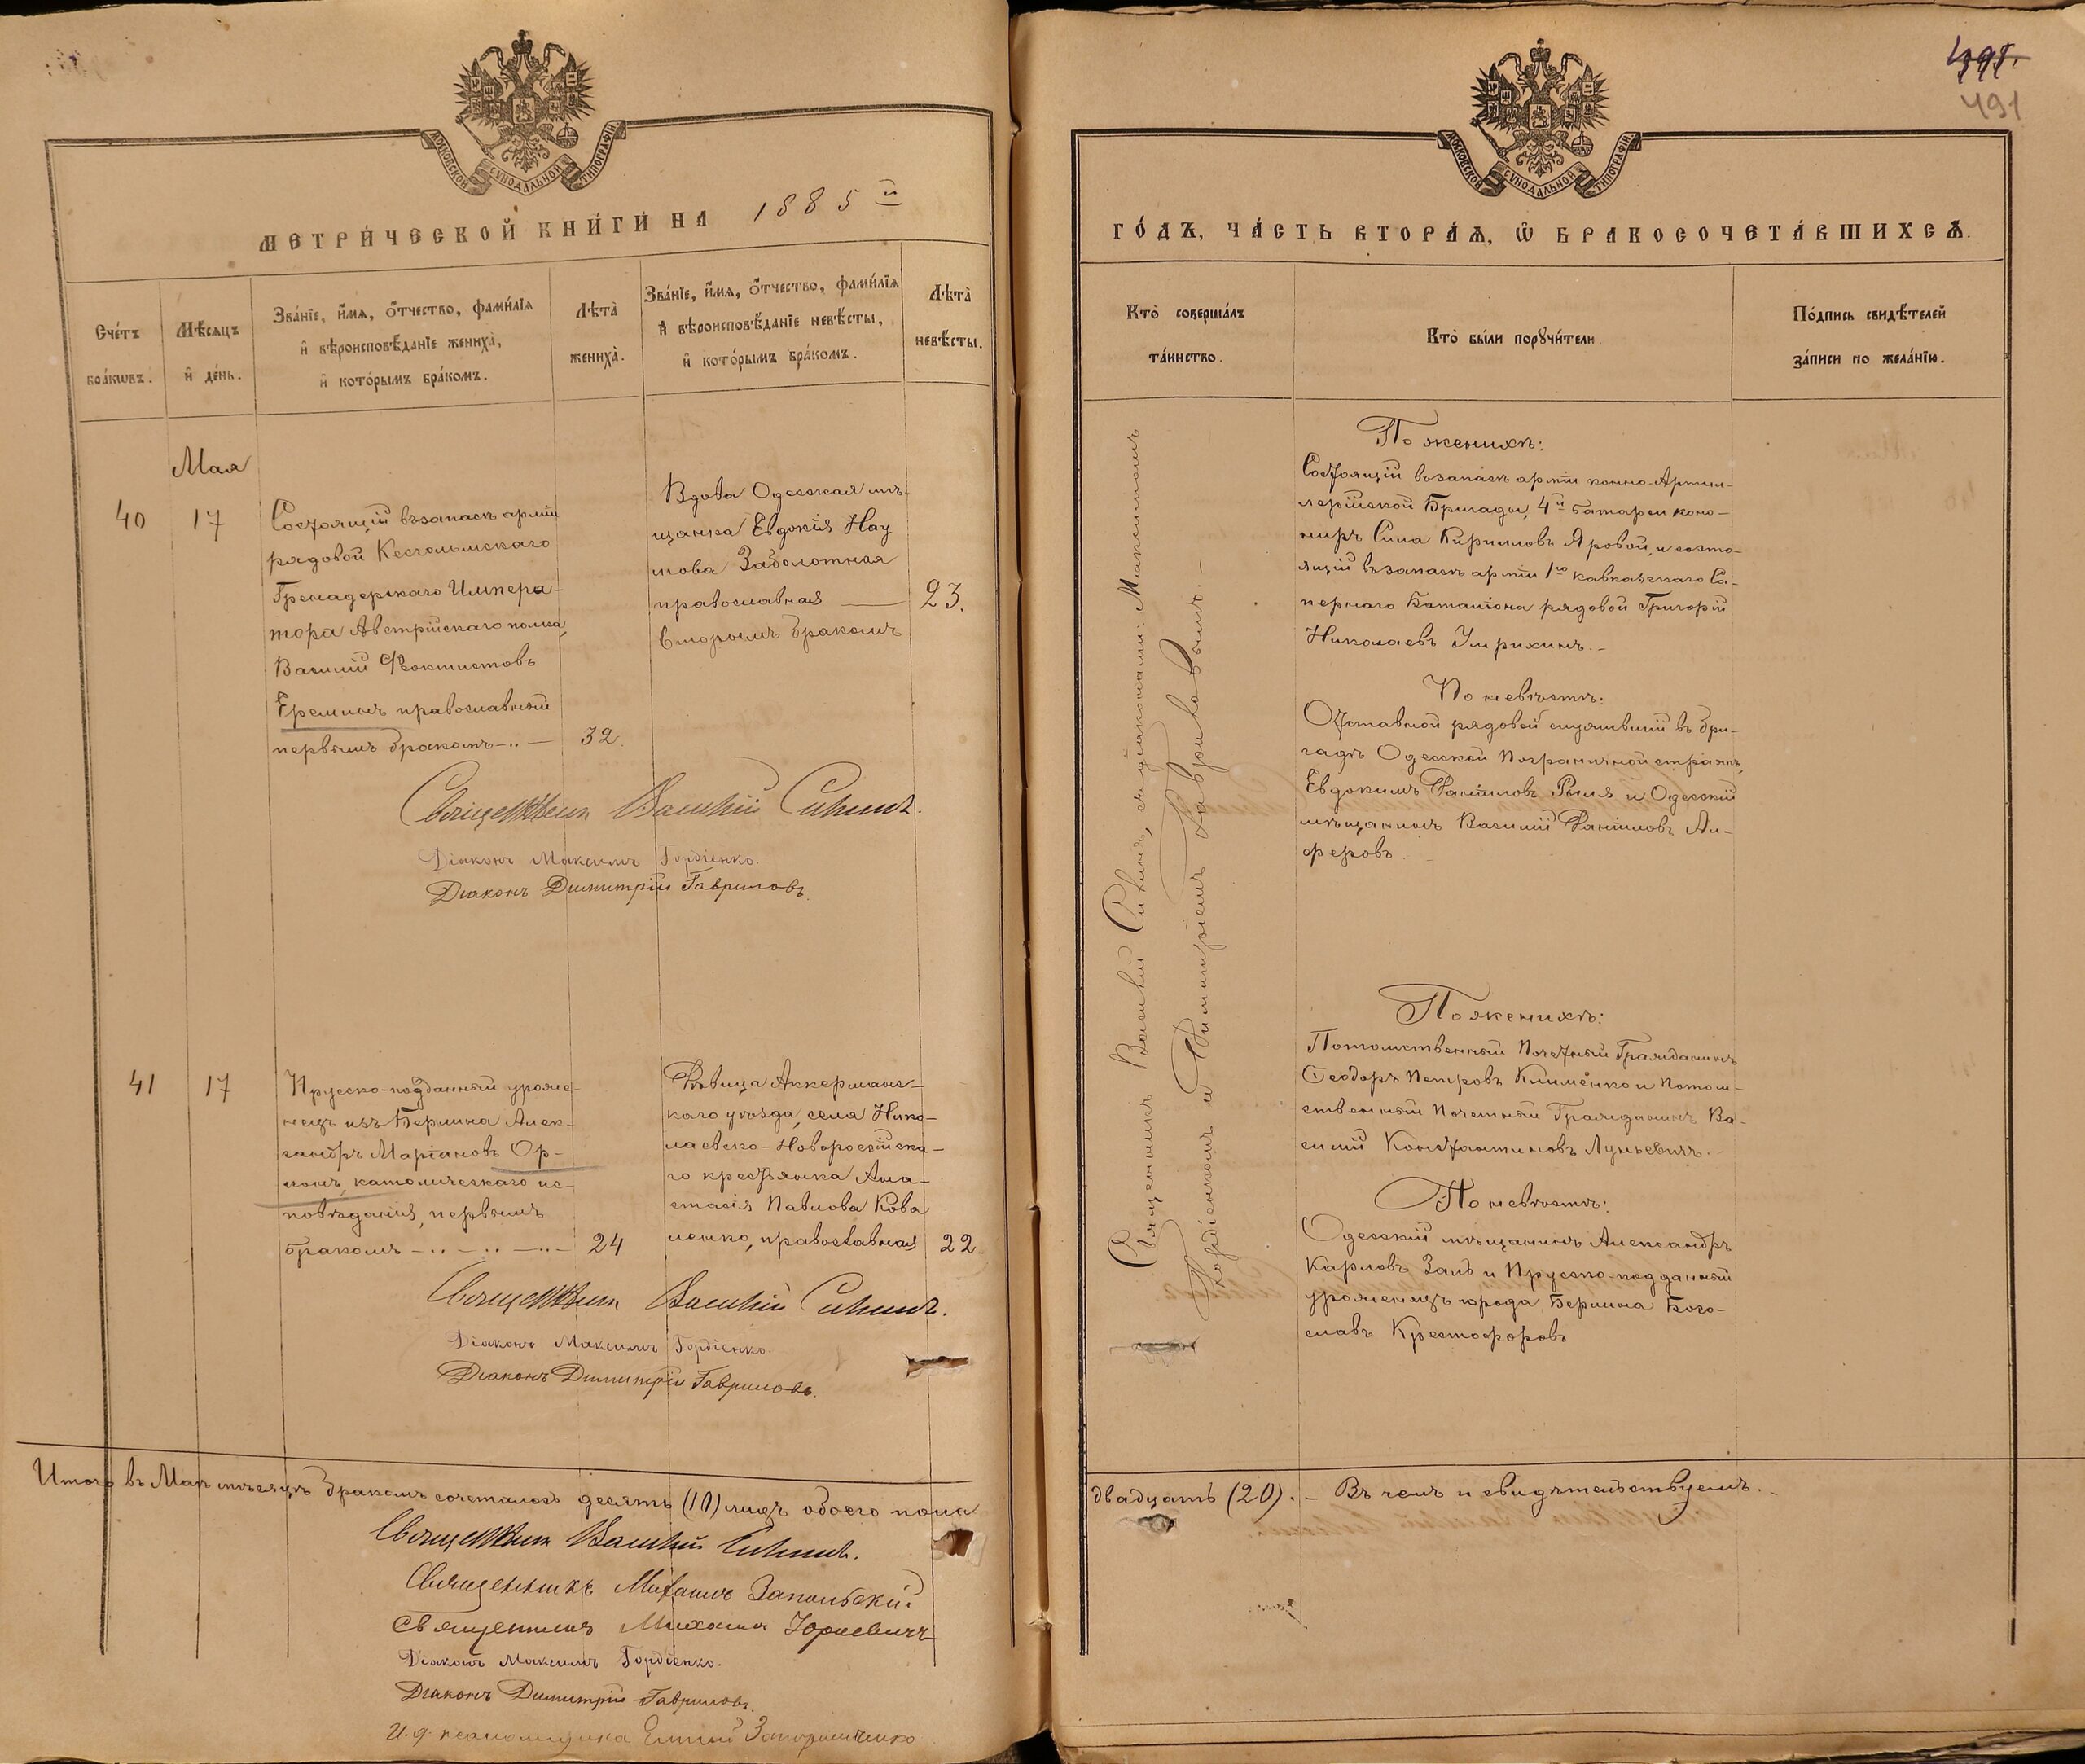 МОСКОВСКОЙ СѴНОДАЛЬНОЙ ТИПОГРАФІИ.
МЕТРИ́ЧЕСКОЙ КНИ́ГИ НА 1885 й
Сче́тъ бра́кωвъ.
Мѣ́сяцъ и҆ де́нь.
Зва́нїе, и҆́мѧ, ѻ҆́тчество, фами́лїѧ
и҆ вѣроисповѣ́данїе жениха̀,
и҆ кото́рымъ бра́комъ.
Лѣ́та̀ жениха̀.
Зва́нїе, и҆́мѧ, ѻ҆́тчество, фами́лїѧ
и҆ вѣроисповѣ́данїе невѣ́сты,
и҆ кото́рымъ бра́комъ.
Лѣ́та̀ невѣ́сты.
Мая
40
17
Состоящій въ запасѣ арміи
рядовой Кексгольмскаго
Гренадерскаго Импера-
тора Австрійскаго полка,
Василій Ѳеоктистовъ
Ереминъ православный
первымъ бракомъ
32.
Вдова Одесская мѣ-
щанка Евдокія Нау
мова Заболотная
православная
вторымъ бракомъ
23.
Священникъ Василій Сикинъ.
Діаконъ Максимъ Гордіенко.
Діаконъ Димитрій Гавриловъ.
41
17
Прусско-подданный уроже-
нецъ изъ Берлина Алек-
сандръ Маріановъ Ор-
лонъ, католическаго ис-
повѣданія, первымъ
бракомъ
24
Дѣвица Аккерманс-
каго уѣзда, села Нико-
лаевско-Новоросійска-
го крестьянка Ана-
стасія Павлова Кова
ленко, православная
22
Священникъ Василій Сикинъ.
Діаконъ Максимъ Гордіенко.
Діаконъ Димитрій Гавриловъ.
Итого въ Маѣ мѣсяцѣ бракомъ сочеталось десять (10) лицъ обоего пола
Священникъ Василій Сикинъ.
Священникъ Михаилъ Запольскій
Священникъ Михаилъ Юркевичъ
Діаконъ Максимъ Гордіенко.
Діаконъ Димитрій Гавриловъ.
И. д. псаломщика
491
МОСКОВСКОЙ СѴНОДАЛЬНОЙ ТИПОГРАФІИ.
ГО́ДЪ, ЧА́СТЬ ВТОРА́Ѧ, Ѡ҆ БРАКОСОЧЕТА́ВШИХСѦ.
Кто̀ соверша́лъ та́инство.
Кто̀ бы́ли порꙋчи́тели.
По́дпись свидѣ́телей за́писи по жела́нїю.
Священникъ Василій Сикинъ, съ діаконами: Максимомъ
Гордіенкомъ и Димитріемъ Гавриловымъ.
По женихѣ:
Состоящій въ запасѣ арміи конно-Артил-
лерійской Бригады, 4й батареи коно-
ниръ Сила Кирилловъ Яровой, и состо-
ящій въ запасѣ арміи 1го кавказскаго Са-
пернаго Баталіона рядовой Григорій
Николаевъ Умрихинъ.
По невѣстѣ:
Отставной рядовой служившій въ бри-
гадѣ Одесской Пограничной стражѣ,
Евдокимъ Даниловъ Рыля и Одесскій
мѣщанинъ Василій Даниловъ Ал-
феровъ.
По женихѣ:
Потомственный Почетный Гражданинъ
Ѳеодоръ Петровъ Клименко и потом-
ственный Почетный Гражданинъ Ва-
силій Константиновъ Луньевичъ.
По невѣстѣ:
Одесскій мѣщанинъ Александръ
Карловъ Заль и Прусско-подданный
уроженецъ города Берлина Бого-
славъ Крестофоровъ
двадцать (20). – Въ чемъ и свидѣтельствуемъ.